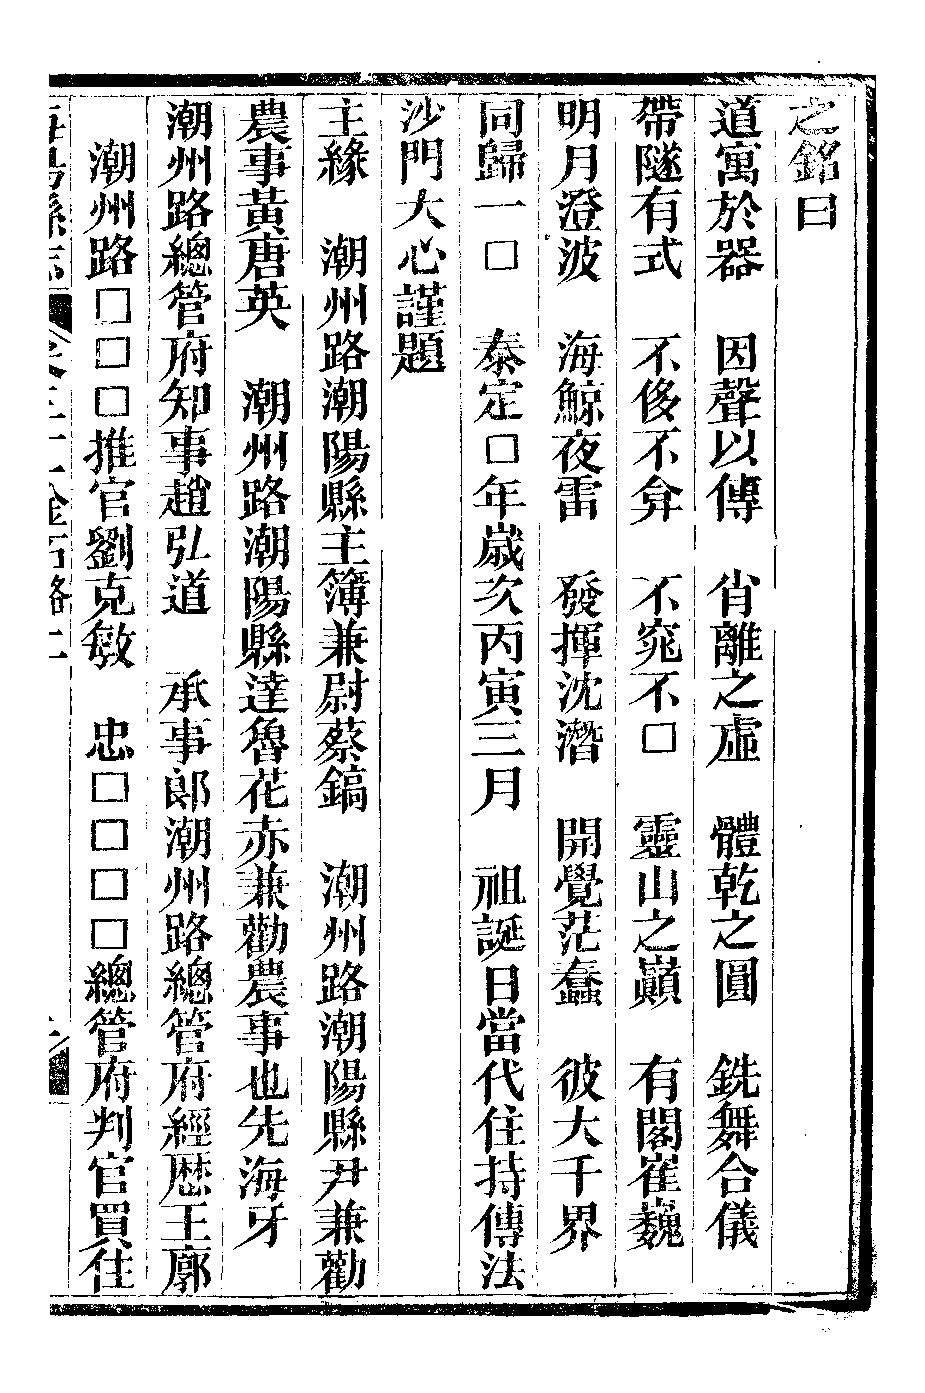 之銘曰
道寓於器　因聲以傳　肖離之虛　體乾之圓　銑舞合儀
帶隧有式　不侈不弇　不窕不□　靈山之巔　有閣崔巍
明月澄波　海鯨夜雷　發揮沈潛　開覺茫蠢　彼大千界
同歸一□　泰定□年歲次丙寅三月　祖誕日當代住持傳法
沙門大心謹題
主緣　潮州路潮陽縣主簿兼尉蔡鎬　潮州路潮陽縣尹兼勸
農事黃唐英　潮州路潮陽縣達魯花赤兼勸農事也先海牙
潮州路總管府知事趙弘道　承事郎潮州路總管府經歷王廓
潮州路□□□推官劉克敏　忠□□□□總管府判官買住
海陽縣志　卷三十　金石略一